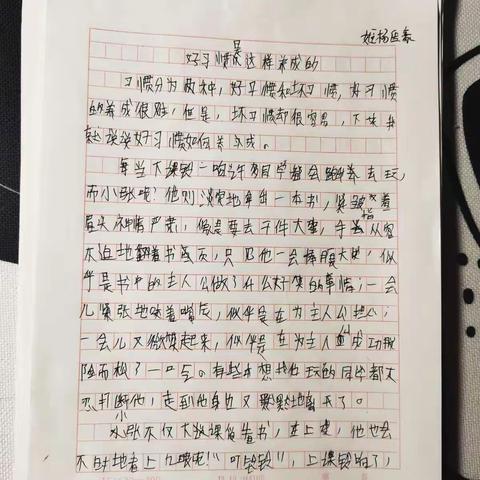 好习惯是这样养成的
习惯分为两种，好习惯和坏习惯，好习惯
的养成很难，但是，坏习惯却很容易，下面我
就谈谈好习惯如何养成。
每当下课铃一响，许多同学都会跑着去玩，
而小张呢？他则淡定地拿出一本书，紧皱着
眉头，神情严肃，像是要去干件大事，手指从容
不迫地翻着书页，只见他一会捧腹大笑，似
乎是书中的主人公做了什么好笑的事情；一会
儿紧张地咬着嘴唇，似乎是在为主人公担心；
一会儿又微笑起来，似乎是在为主人公成功脱
险而松了一口气。有些想找他玩的同学都不
忍打断他，走到他身边又默默地离开了。
小张不仅大课间看书，在上课，他也会
不时地看上几眼呢！"叮铃铃"，上课铃响了，